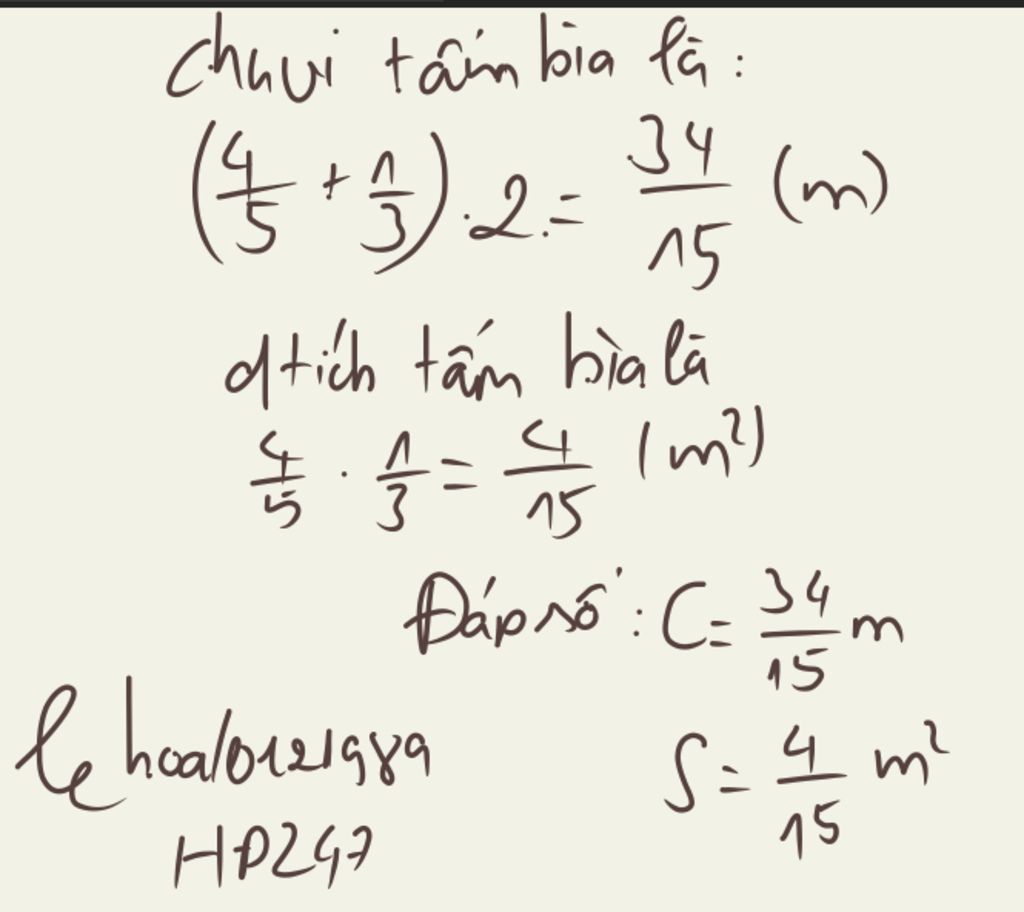 chu vi tấm bìa là :
(4/5 + 1/3) . 2 = 34/15 (m)
dtích tấm bìa là
4/5 . 1/3 = 4/15 (m²)
Đáp số : C = 34/15 m
S = 4/15 m²
HD247